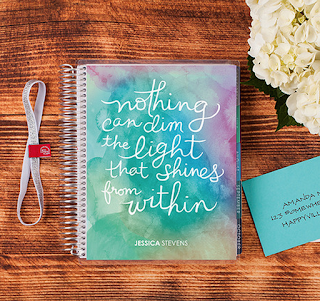 nothing
can dim
the light
that shines
from
within
JESSICA STEVENS
AMANDA
123 SOMEWHERE
HAPPYVILL